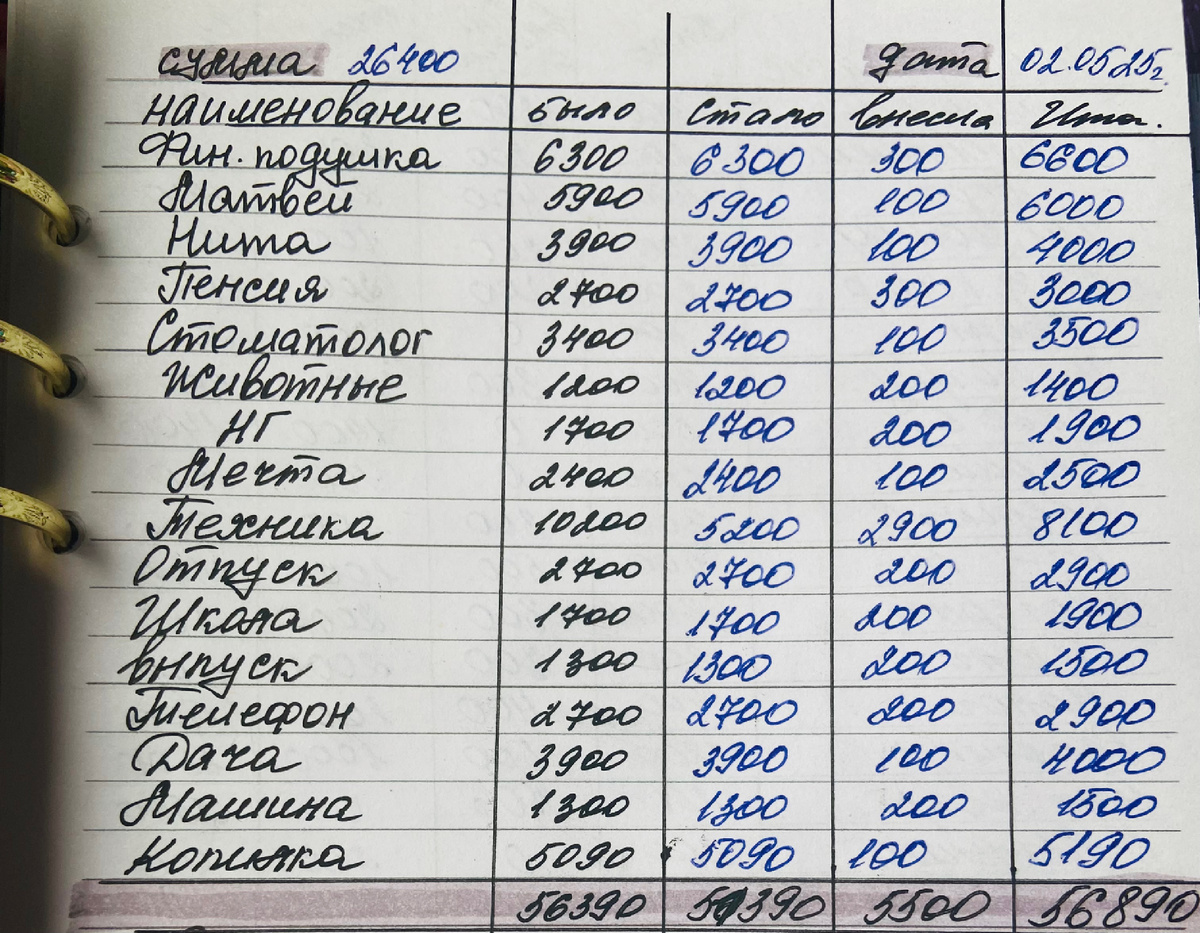 сумма 26400 дата 02.0525г.
наименование было стало внесла Ито.
Фин. подушка 6300 6300 300 6600
Матвей 5900 5900 100 6000
Нита 3900 3900 100 4000
Пенсия 2700 2700 300 3000
Стоматолог 3400 3400 100 3500
Животные 1200 1200 200 1400
НГ 1700 1700 200 1900
Мечта 2400 2400 100 2500
Техника 10200 5200 2900 8100
Отпуск 2700 2700 200 2900
Школа 1700 1700 200 1900
выпуск 1300 1300 200 1500
Телефон 2700 2700 200 2900
Дача 3900 3900 100 4000
Машина 1300 1300 200 1500
Копилка 5090 5090 100 5190
56390 51390 5500 56890